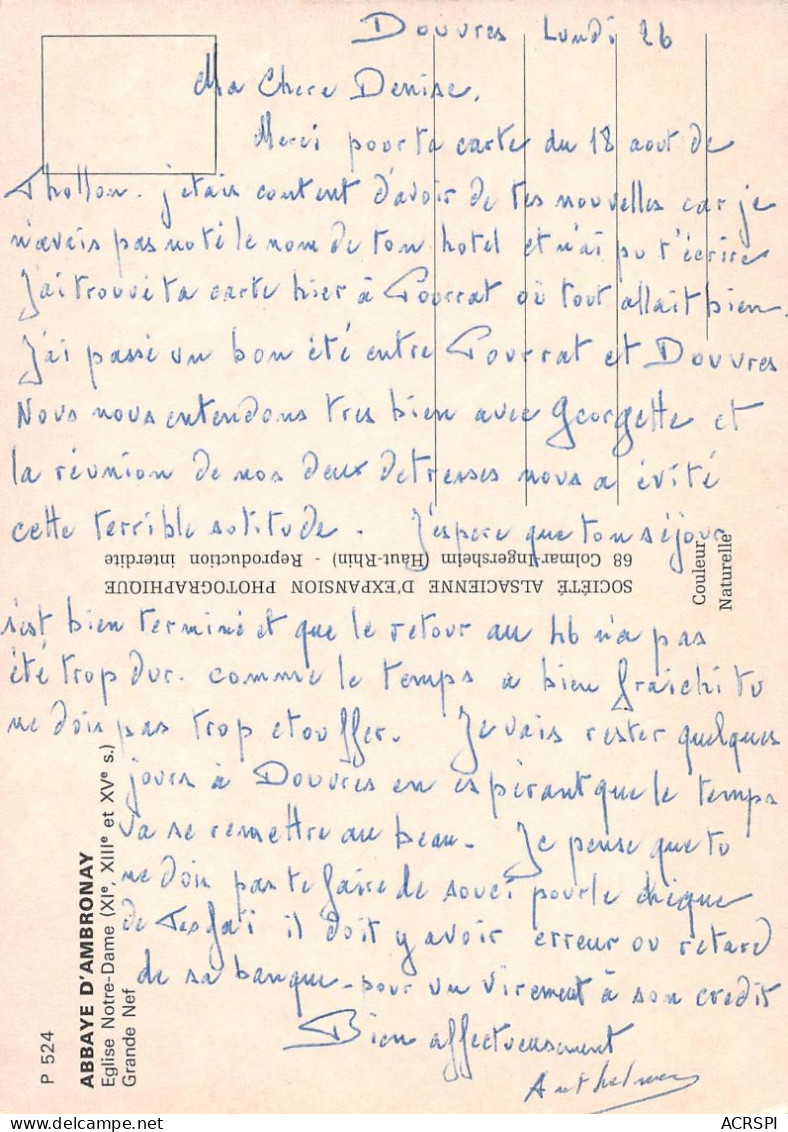 Douvres Lundi 26
Ma Chere Denise,
Merci pour ta carte du 18 aout de
Thollon. j'etais content d'avoir de tes nouvelles car je
n'avais pas noté le nom de ton hotel et n'ai pu t'écrire
J'ai trouvé ta carte hier à Pourrat où tout allait bien.
J'ai passé un bon été entre Pourrat et Douvres
Nous nous entendons tres bien avec Georgette et
la réunion de nos deux detresses nous a évité
cette terrible solitude. J'espere que ton séjour
68 Colmar-Ingersheim (Haut-Rhin) - Reproduction interdite
SOCIÉTÉ ALSACIENNE D'EXPANSION PHOTOGRAPHIQUE
Couleur
Naturelle
s'est bien terminé et que le retour au 46 n'a pas
été trop dur. comme le temps a bien fraichi tu
ne dois pas trop etouffer. Je vais rester quelques
jours à Douvres en espérant que le temps
va se remettre au beau. Je pense que tu
ne dois pas te faire de souci pour le chèque
de il doit y avoir erreur ou retard
de sa banque - pour un virement à son credit
Bien affectueusement
Anthelme
P 524
ABBAYE D'AMBRONAY
Eglise Notre-Dame (XIe, XIIIe et XVe s.)
Grande Nef
ACRSPI